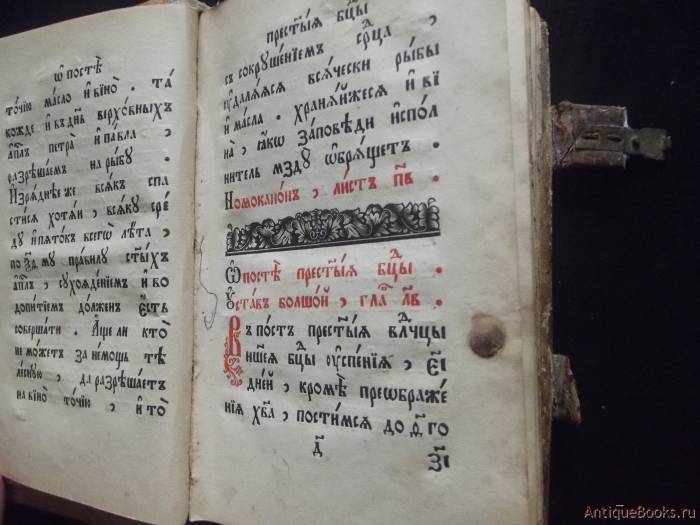 Ѡ постѣ
то́чїю ма́сло и҆ вїно̀ . та́
кожде и҆ въ дн҃ь верхо́вныхъ
а҆пⷭ҇лъ петра̀ и҆ па́вла ,
разрѣша́емъ на ры́бу .
И҆зря́днѣе же всѧ́къ спа
сти́ся хотя́и , вся́ку сре́
ду и҆ пято́къ всего̀ лѣ́та ,
по ѯ҃д му пра́вилу ст҃ы́хъ
а҆пⷭ҇лъ , сухояде́нїемъ и҆ во
допи́тїемъ до́лженъ є҆́сть
соверша́ти . А҆́ще ли кто̀
не мо́жетъ за не́мощь тѣ
ле́сную , да разрѣша́етъ
на вїно̀ то́чїю , и҆ то̀
прест҃ы́я бц҃ы
съ сокруше́нїемъ срⷣца ,
и҆ ᲂу҆даля́яся вся́чески ры́бы
и҆ ма́сла . храня́йжеся и҆ вї
на̀ , ꙗ҆́кѡ за́поведи и҆спол
ни́тель мзду̀ ѡ҆бря́щетъ .
Номокано́нъ , ли́стъ п҃в .
Ѡ постѣ̀ прест҃ы́я бц҃ы .
ᲂу҆ста́въ болшо́й , гла̀ л҃в .
Въ по́стъ прест҃ы́я влⷣчцы
на́шея бц҃ы ᲂу҆спе́нїя , є҃і
дне́й , кромѣ̀ преѡбраже́
нїя хв҃а , пости́мся до д҃ го
д҃
з҃і
AntiqueBooks.ru